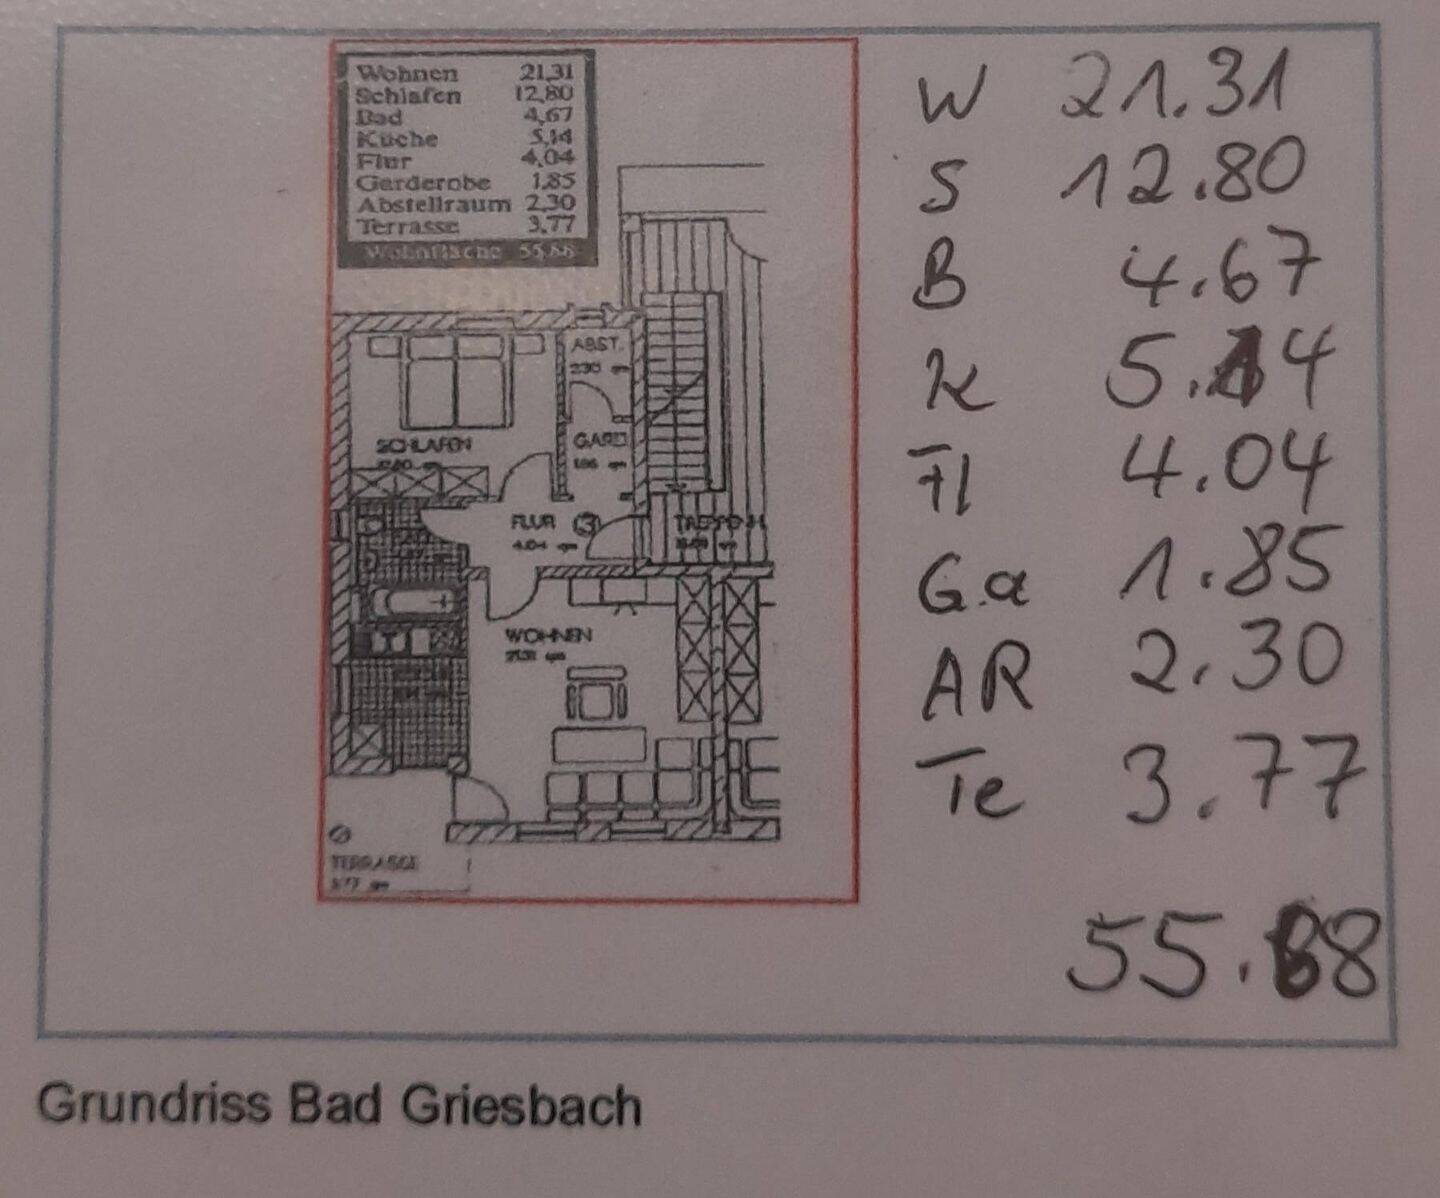 Wohnen 21,31
Schlafen 12,80
Bad 4,67
Küche 5,14
Flur 4,04
Garderobe 1,85
Abstellraum 2,30
Terrasse 3,77
Wohnfläche 55,88
W 21.31
S 12.80
B 4.67
K 5.14
Fl 4.04
Ga 1.85
AR 2.30
Te 3.77
55.88
ABST.
2.30 qm
SCHLAFEN
GARD.
1.85 qm
FLUR 3
4.04 qm
TREPPENH.
WOHNEN
21.31 qm
TERRASSE
3.77 qm
Grundriss Bad Griesbach